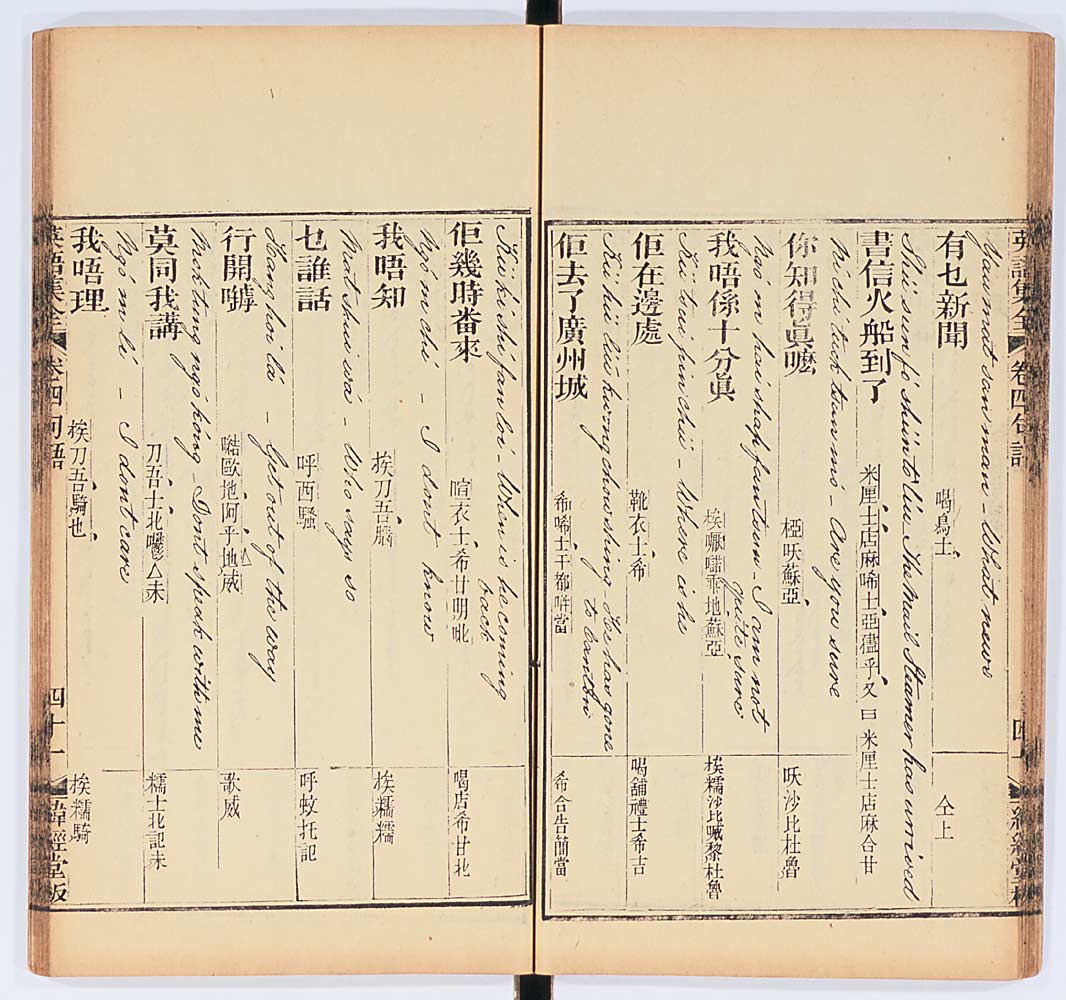 英語集全 卷四 句語
Yau mat san man – What news
有乜新聞
喝鳥士
仝上
Shü sun fó shün tò liú The mail Steamer has arrived
書信火船到了
米厘士店麻唏士亞儘乎又曰米厘士店麻合甘
Ni chi tuck tsun má – Are you sure
你知得眞嚒
椏㕭蘇亞
㕭沙比杜魯
Ngó m hai shap fan tsun – I am not quite sure
我唔係十分眞
埃嚫㗒乖地蘇亞
埃糯沙比嘁黎杜魯
Kü tsoi pin chü – Where is he
佢在邊處
靴衣士希
喝舖禮士希吉
Kü hü liú kwong chow shing – He has gone to Canton
佢去了廣州城
希唏士干都啩當
希合告簡當
Kü ki shí fan loi – When is he coming back
佢幾時畨來
喧衣士希甘明吡
喝店希甘北
Ngó m chi – I dont know
我唔知
埃刀吾臑
埃糯糯
Mat shui wá – Who says so
乜誰話
呼西騷
呼蚊托記
Hang hoi lá – Get out of the way
行開嘑
㗖歐地阿乎地威
歌威
Mok tung ngó kóng – Dont speak with me
莫同我講
刀吾士北嚶△未
糯士北記未
Ngó m lí – I dont care
我唔理
埃刀吾騎也
埃糯騎
英語集全 卷四 句語 四十一 緯經堂板